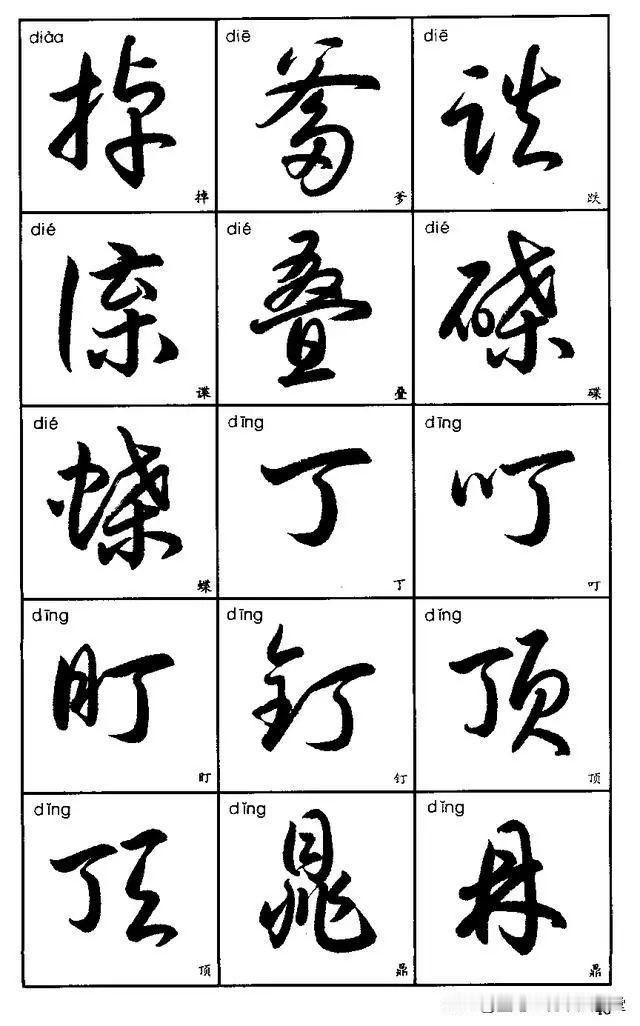 diào diē diē
掉 爹 跌
掉 爹 跌
dié dié dié
谍 叠 碟
谍 叠 碟
dié dīng dīng
蝶 丁 叮
蝶 丁 叮
dīng dīng dǐng
盯 钉 顶
盯 钉 顶
dǐng dǐng dǐng
顶 鼎 鼎
顶 鼎 鼎